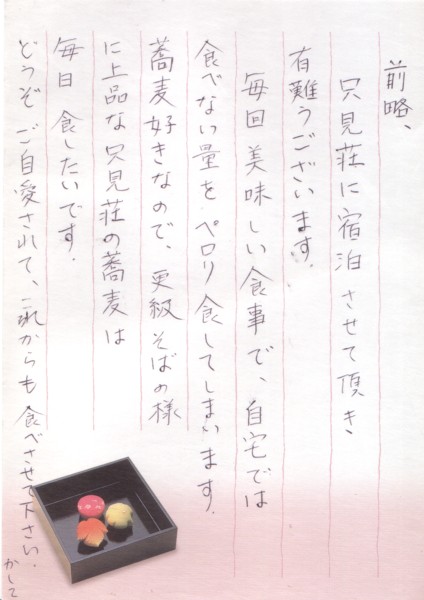 前略、
只見荘に宿泊させて頂き
有難うございます.
毎回美味しい食事で、自宅では
食べない量をペロリ食してしまいます.
蕎麦好きなので、更級そばの様
に上品な只見荘の蕎麦は
毎日食したいです.
どうぞご自愛されて、これからも食べさせて下さい.
かしこ